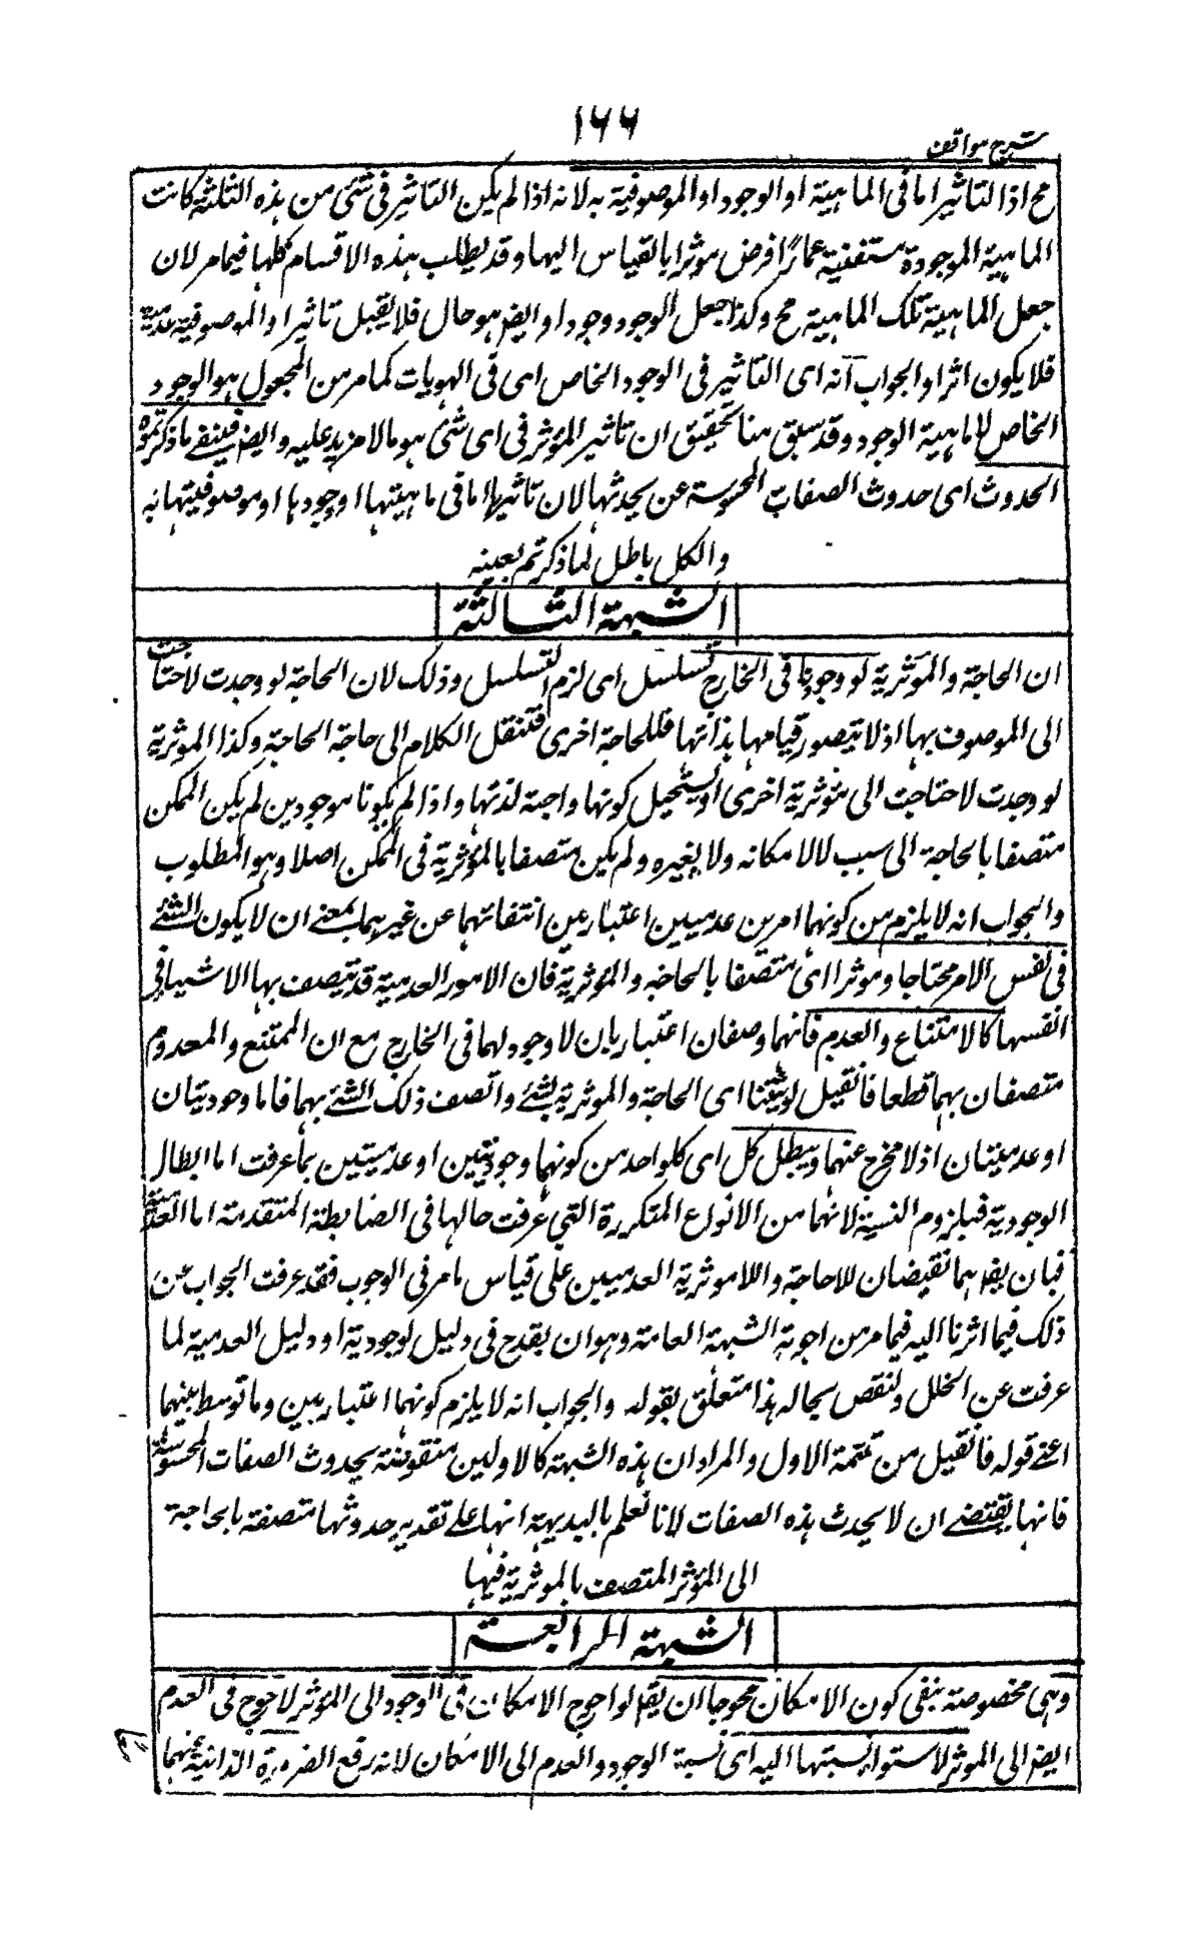 ١٦٦
شرح مواقف
مح اذ التاثير اما فى الماهية او الوجود او الموصوفية به لانه اذا لم يكن التاثير فى شئ من هذه الثلثة كانت
الماهية الموجودة مستغنية عما فرض موثرا بالقياس اليها وقد يطلب هذه الاقسام كلها فيما مر لان
جعل الماهية تلك الماهية مح وكذا جعل الوجود وجودا وايضا هو حال فلا يقبل تاثيرا والموصوفية عدمية
فلا يكون اثرا والجواب انه اى التاثير فى الوجود الخاص اى فى الهويات كما مر من المجعول هو الوجود
الخاص لا ماهية الوجود وقد سبق منا تحقيق ان تاثير المؤثر فى اى شئ هو مالا مزيد عليه وايضا فينفى ما ذكرتموه
الحدوث اى حدوث الصفات المحسوسة عن يحدثها لان تاثيرها اما فى ماهيتها او وجودها او موصوفيتها به
والكل باطل لما ذكرتم بعينه
الشبهة الثالثة
ان الحاجة والمؤثرية لو وجدتا فى الخارج تسلسل اى لزم التسلسل وذلك لان الحاجة لو وجدت لاحتاجت
الى الموصوف بها اذ لا يتصور قيامها بذاتها فللحاجة اخرى فننقل الكلام الى حاجة الحاجة وكذا الموثرية
لو وجدت لاحتاجت الى مؤثرية اخرى اذ يستحيل كونها واجبة لذاتها واذا لم يكونا موجودين لم يكن الممكن
متصفا بالحاجة الى سبب لا لامكانه ولا لغيره ولم يكن متصفا بالمؤثرية فى الممكن اصلا وهو المطلوب
والجواب انه لا يلزم من كونهما امرين عدميين اعتباريين انتفائهما عن غيرهما بمعنى ان لا يكون الشئ
فى نفس الامر محتاجا وموثرا اى متصفا بالحاجة والمؤثرية فان الامور العدمية قد يتصف بها الاشيا فى
انفسها كالامتناع والعدم فانهما وصفان اعتباريان لا وجود لهما فى الخارج مع ان الممتنع والمعدوم
متصفان بهما قطعا فان قيل لو ثبتنا اى الحاجة والموثرية لشئ واتصف ذلك الشئ بهما فاما وجوديتان
او عدميتان اذ لا مخرج عنهما ويبطل كل اى كلواحد من كونهما وجوديتين او عدميتين بما عرفت اما ابطال
الوجودية فبلزوم التسلسل لانهما من الانواع المتكررة التى عرفت حالها فى الضابطة المتقدمة اما العدمية
فبان يقم هما نقيضان للاحاجة واللا موثرية العدميين على قياس ما مر فى الوجوب فقد عرفت الجواب عن
ذلك فيما اشرنا اليه فيما مر من اجوبة الشبهة العامة وهو ان يقدح فى دليل لوجودية او دليل العدمية لما
عرفت عن الخلل والنقص بحاله هذا متعلق بقوله والجواب انه لا يلزم كونهما اعتباريين وما توسط بينهما
اعنى قوله فان قيل من تتمة الاول والمراد ان هذه الشبهة كالاولين منقوضة بحدوث الصفات المحسوسة
فانها يقتضى ان لا يحدث هذه الصفات لانا نعلم بالبديهة انها على تقدير حدوثها متصفة بالحاجة
الى المؤثر المتصف بالموثرية فيها
الشبهة الرابعة
وهى مخصوصة بنفى كون الامكان محوجا ان يقم لو احوج الامكان فى الوجود الى المؤثر لاحوج فى العدم
ايضا الى الموثر لاستوا نسبتها اليه اى نسبة الوجود والعدم الى الامكان لانه رفع الضرورة الذاتية عنهما